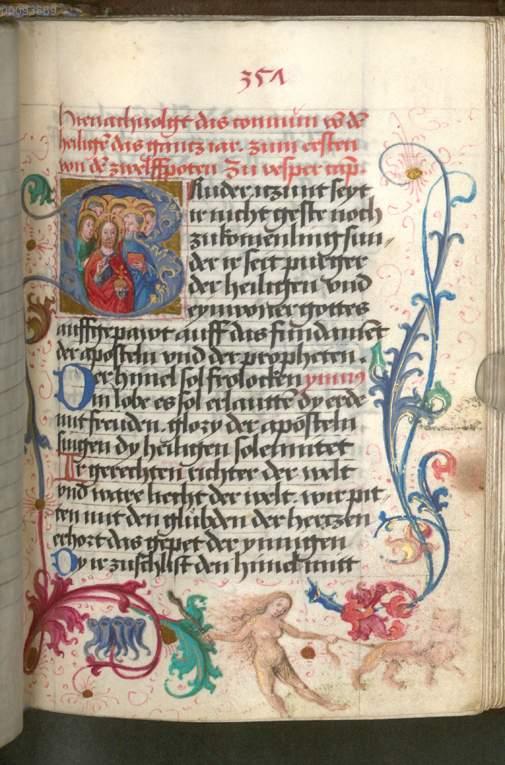 351
Hienachuolgt das comun võ dē
heiligē das gantz iar. zum ersten
von dē zwelffpoten Zu vesper cap.
Bruder itzunt seyt
ir nicht geste noch
zukomenling sun⸗
der ir seit purger
der heiligen vnd
eynwoner gottes
auffgepawt auff das fundamēt
der aposteln vnd der propheten.
Der himel sol frolocken ymnus
Im lobe es sol erlautē dy erde
mit freuden. glory der aposteln
singen dy heiligen solemnitet
Ir gerechten richter der welt
vnd ware liecht der welt. wir pit⸗
ten mit den glubden der hertzen
erhort das gepet der ynnigen
Dy ir zuschlist den himel mitt